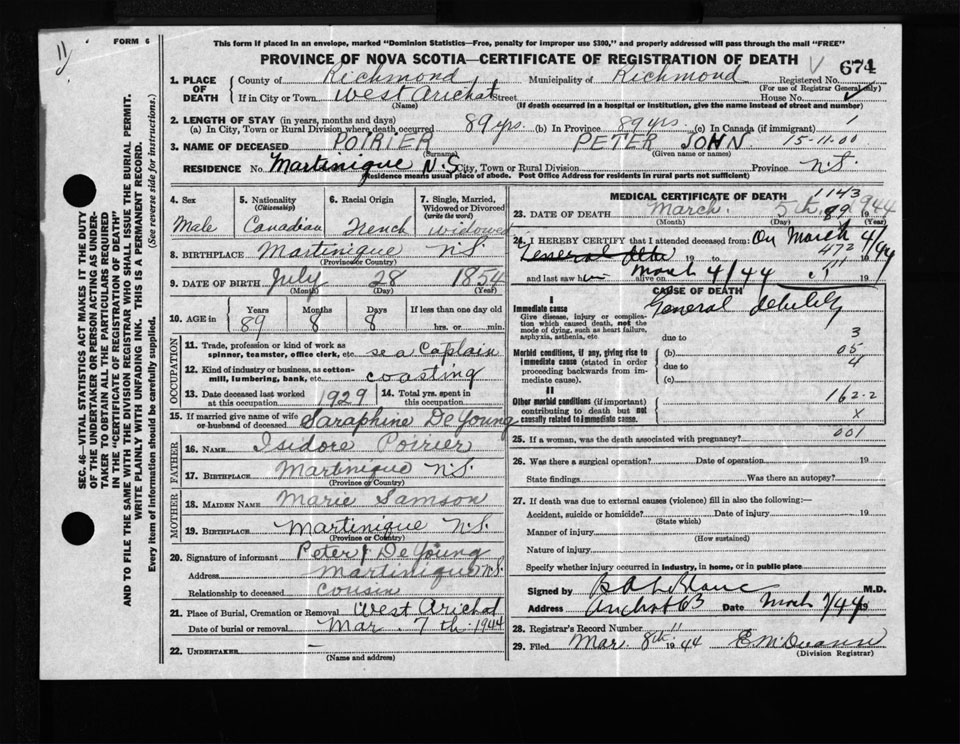 11
FORM 6
This form if placed in an envelope, marked "Dominion Statistics—Free, penalty for improper use $300," and properly addressed will pass through the mail "FREE"
PROVINCE OF NOVA SCOTIA—CERTIFICATE OF REGISTRATION OF DEATH
674
1. PLACE OF DEATH
County of Richmond Municipality of Richmond Registered No.
(For use of Registrar General only)
If in City or Town West Arichat Street House No.
(Name) (If death occurred in a hospital or institution, give the name instead of street and number)
2. LENGTH OF STAY (in years, months and days)
(a) In City, Town or Rural Division where death occurred 89 yrs. (b) In Province 89 yrs. (c) In Canada (if immigrant) 1
3. NAME OF DECEASED POIRIER PETER JOHN 15-11-00
(Surname) (Given name or names)
RESIDENCE No. Martinique N.S City, Town or Rural Division Province N.S.
Residence means usual place of abode. Post Office Address for residents in rural parts not sufficient)
SEC. 46—VITAL STATISTICS ACT MAKES IT THE DUTY
OF THE UNDERTAKER OR PERSON ACTING AS UNDER-
TAKER TO OBTAIN ALL THE PARTICULARS REQUIRED
IN THE "CERTIFICATE OF REGISTRATION OF DEATH"
AND TO FILE THE SAME WITH THE DIVISION REGISTRAR WHO SHALL ISSUE THE BURIAL PERMIT.
WRITE PLAINLY WITH UNFADING INK. THIS IS A PERMANENT RECORD.
Every item of information should be carefully supplied. (See reverse side for instructions.)
4. Sex
Male
5. Nationality
(Citizenship)
Canadian
6. Racial Origin
French
7. Single, Married, Widowed or Divorced
(write the word)
widowed
8. BIRTHPLACE Martinique N.S.
(Province or Country)
9. DATE OF BIRTH July 28 1854
(Month) (Day) (Year)
10. AGE in
Years Months Days If less than one day old
89 8 8 hrs. or min.
OCCUPATION
11. Trade, profession or kind of work as
spinner, teamster, office clerk, etc. sea Captain
12. Kind of industry or business, as cotton-
mill, lumbering, bank, etc. coasting
13. Date deceased last worked
at this occupation 1929
14. Total yrs. spent in
this occupation
15. If married give name of wife
or husband of deceased Saraphine DeYoung
FATHER
16. NAME Isidore Poirier
17. BIRTHPLACE Martinique N.S.
(Province or Country)
MOTHER
18. MAIDEN NAME Marie Samson
19. BIRTHPLACE Martinique N.S.
(Province or Country)
20. Signature of informant Peter J DeYoung
Address Martinique N.S.
Relationship to deceased Cousin
21. Place of Burial, Cremation or Removal West Arichat
Date of burial or removal Mar. 7th. 1944
22. UNDERTAKER —
(Name and address)
MEDICAL CERTIFICATE OF DEATH
1143
23. DATE OF DEATH March. 5th 89 1944
(Month) (Day) (Year)
24. I HEREBY CERTIFY that I attended deceased from: On March 4/44
19 to 472 19
and last saw him alive on March 4/44 19
CAUSE OF DEATH
I
Immediate cause General debility
Give disease, injury or complica-
tion which caused death, not the
mode of dying, such as heart failure,
asphyxia, asthenia, etc.
due to 3
Morbid conditions, if any, giving rise to
immediate cause (stated in order
proceeding backwards from im-
mediate cause).
(b) 05
due to 4
(c)
II
Other morbid conditions (if important)
contributing to death but not
causally related to immediate cause.
162-2
x
001
25. If a woman, was the death associated with pregnancy?
26. Was there a surgical operation? Date of operation 19
State findings Was there an autopsy?
27. If death was due to external causes (violence) fill in also the following:—
Accident, suicide or homicide? Date of injury 19
(State which)
Manner of injury
(How sustained)
Nature of injury
Specify whether injury occurred in industry, in home, or in public place
Signed by B A LeBlanc M.D.
Address Arichat 63 Date March 7/44 19
28. Registrar's Record Number 11
29. Filed Mar. 8th. 1944
(Division Registrar)